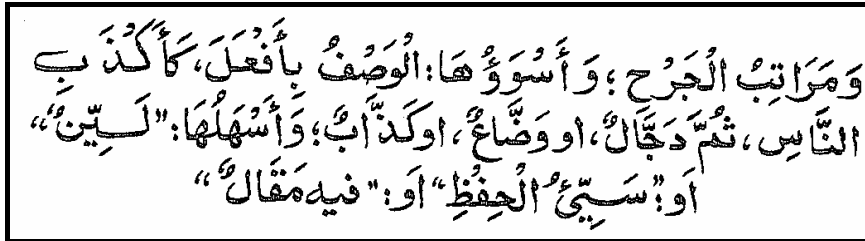 وَمَرَاتِبُ الْجَرْحِ؛ وَأَسْوَؤُهَا: الْوَصْفُ بِأَفْعَلَ، كَأَكْذَبِ
النَّاسِ، ثُمَّ دَجَّالٌ، او وَضَّاعٌ، اوكَذَّابٌ؛ وَأَسْهَلُهَا: "لَـيِّنٌ"
اَو: "سَيِّئُ الْحِفْظِ" اَو: "فيه مَقَالٌ"